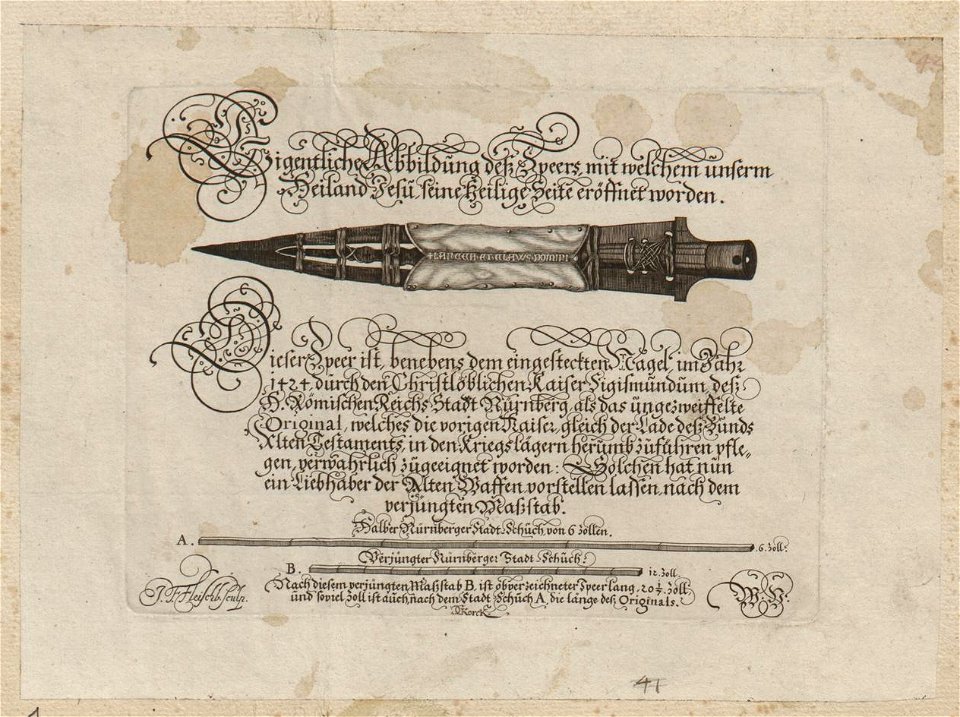 Eigentliche Abbildung deß Speers mit welchem unserm
Heiland Jesu seine heilige Seite eröffnet worden.
+ LANCEA ET CLAWS DOMINI
Dieser Speer ist, benebens dem eingesteckten Nagel, im Jahr
1424, durch den Christlöblichen Kaiser Sigismundum, deß
H. Römischen Reichs Stadt Nürnberg, als das ungezweiffelte
Original, welches die vorigen Kaiser, gleich der Lade deß Bunds
Alten Testaments, in den Kriegslägern herumb zuführen pfle-
gen, verwahrlich zugeeignet worden: Solchen hat nun
ein Liebhaber der Alten Waffen vorstellen lassen, nach dem
verjüngten Maßstab.
Halber Nürnberger Stadt Schuch von 6 Zollen.
A. 6. Zoll.
Verjüngter Nürnberger Stadt Schuch.
B. 12 Zoll
Nach diesem verjüngten Maßstab B. ist obverzeichneter Speer lang, 20½ Zoll,
und soviel Zoll ist auch nach dem Stadt Schuch A, die länge deß Originals.
J. F. Fleischb. sculp.
41